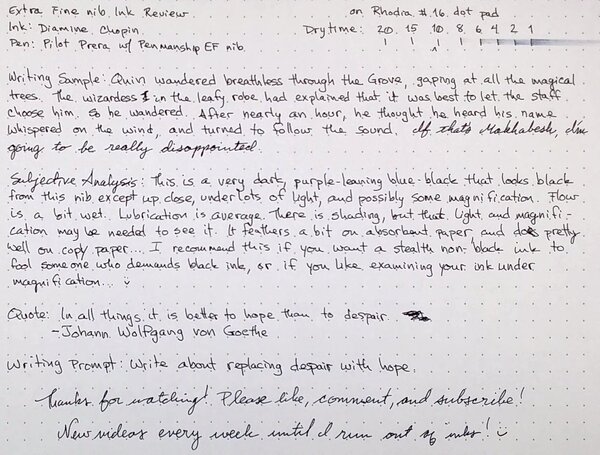 Extra Fine nib Ink Review on Rhodia #16 dot pad
Ink: Diamine Chopin Dry time: 20 15 10 8 6 4 2 1
Pen: Pilot Prera w/ Penmanship EF nib
Writing Sample: Quin wandered breathless through the Grove, gaping at all the magical
trees. The wizardess in the leafy robe had explained that it was best to let the staff
choose him. So he wandered. After nearly an hour, he thought he heard his name
whispered on the wind, and turned to follow the sound. If that's Makhabesh, I'm
going to be really disappointed.
Subjective Analysis: This is a very dark, purple-leaning blue-black that looks black
from this nib except up close, under lots of light, and possibly some magnification. Flow
is a bit wet. Lubrication is average. There is shading, but that light and magnifi-
cation may be needed to see it. It feathers a bit on absorbent paper and does pretty
well on copy paper... I recommend this if you want a stealth non-black ink to
fool someone who demands black ink, or if you like examining your ink under
magnification... :)
Quote: In all things it is better to hope than to despair.
-Johann Wolfgang von Goethe
Writing Prompt: Write about replacing despair with hope.
Thanks for watching! Please like, comment, and subscribe!
New videos every week until I run out of inks! :)